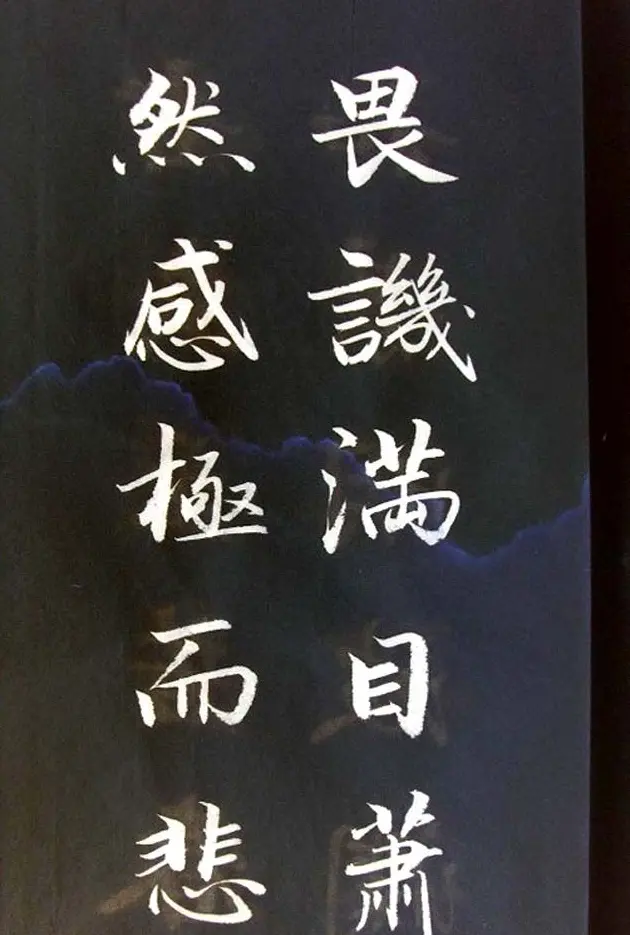 畏譏滿目蕭
然感極而悲